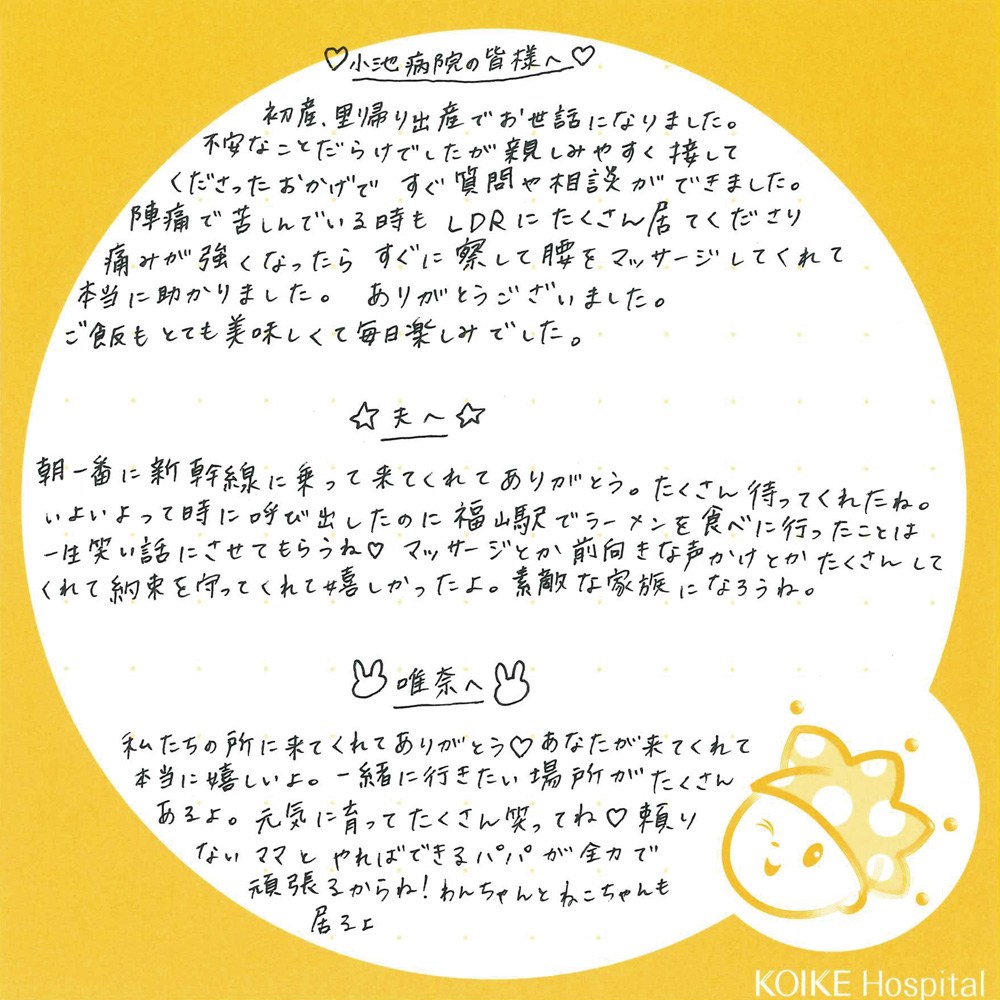 ♡小池病院の皆様へ♡
初産、里帰り出産でお世話になりました。
不安なことだらけでしたが親しみやすく接して
くださったおかげですぐ質問や相談ができました。
陣痛で苦しんでいる時もLDRにたくさん居てくださり
痛みが強くなったらすぐに察して腰をマッサージしてくれて
本当に助かりました。 ありがとうございました。
ご飯もとても美味しくて毎日楽しみでした。
☆夫へ☆
朝一番に新幹線に乗って来てくれてありがとう。たくさん待ってくれたね。
いよいよって時に呼び出したのに福山駅でラーメンを食べに行ったことは
一生笑い話にさせてもらうね♡ マッサージとか前向きな声かけとかたくさんして
くれて約束を守ってくれて嬉しかったよ。素敵な家族になろうね。
唯奈へ
私たちの所に来てくれてありがとう♡あなたが来てくれて
本当に嬉しいよ。一緒に行きたい場所がたくさん
あるよ。元気に育ってたくさん笑ってね♡頼り
ないママとやればできるパパが全力で
頑張るからね!わんちゃんとねこちゃんも
居るよ
KOIKE Hospital